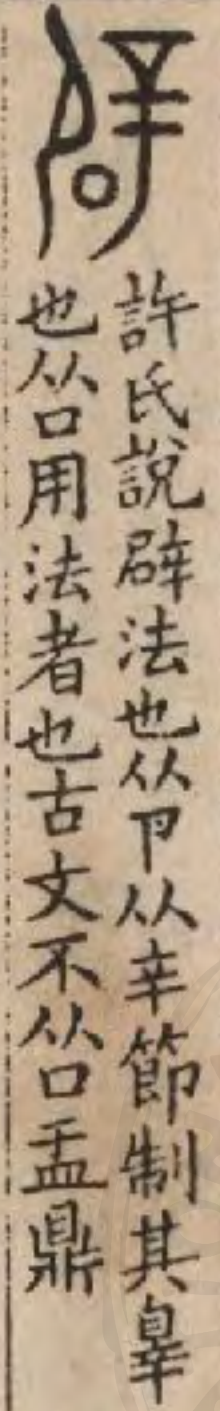 辟
許氏說辟法也从卩从辛節制其辠
也从口用法者也古文不从口盂鼎